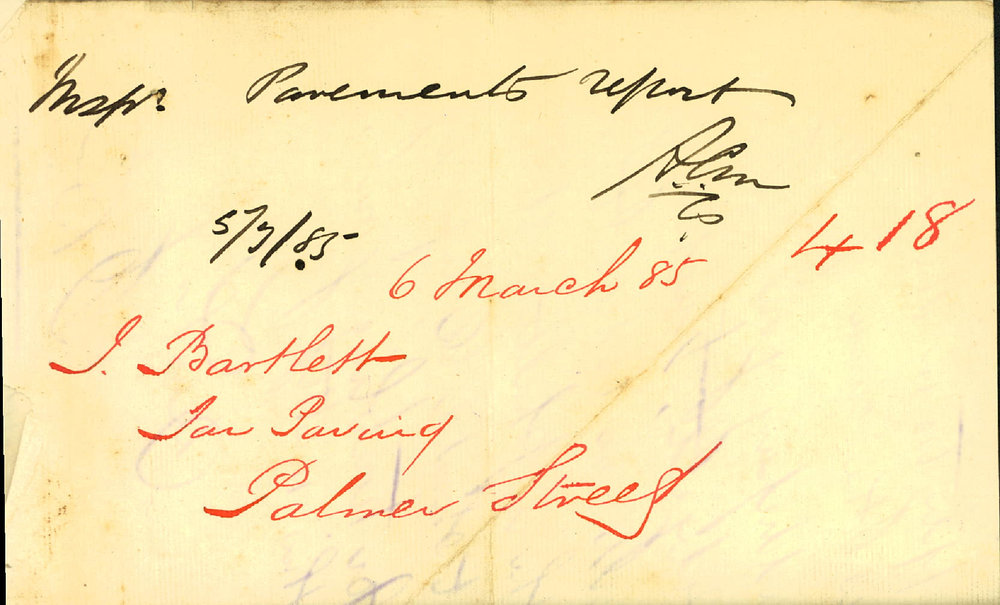 Inspr. Pavements report
5/3/85
6 March 85
418
J. Bartlett
Tar Paving
Palmer Street